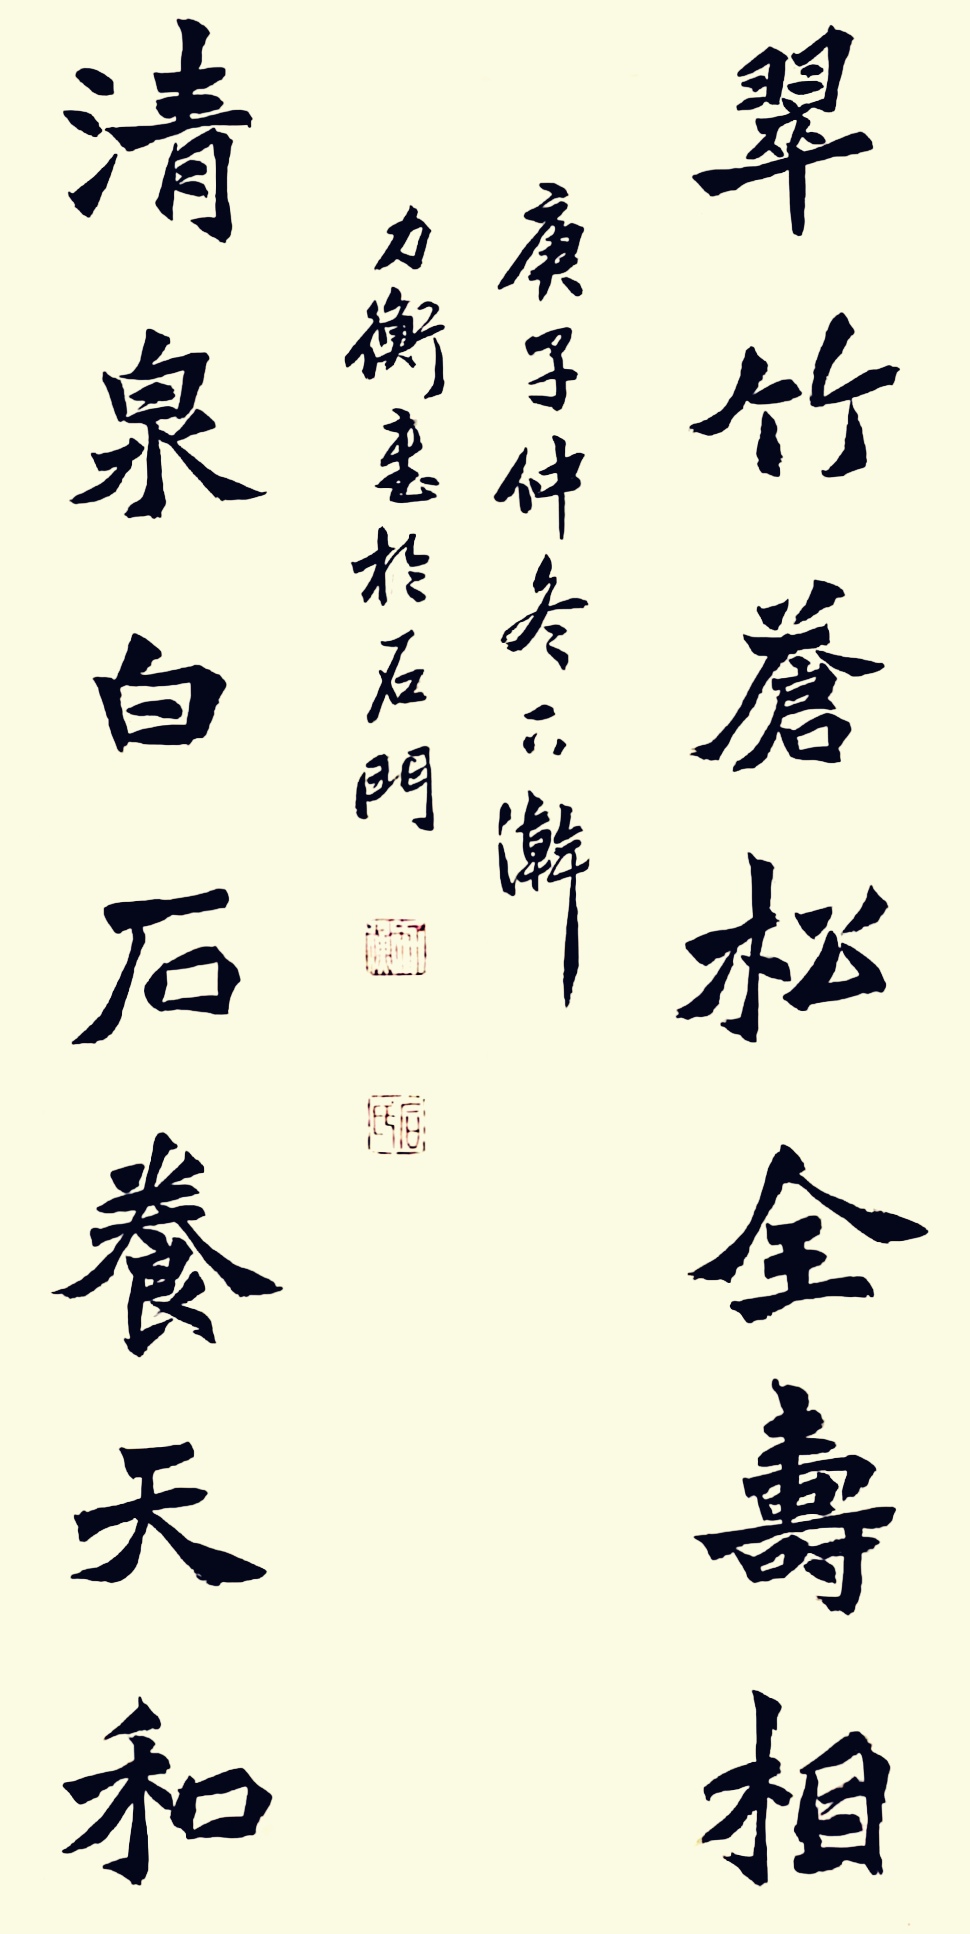 翠竹蒼松全壽相
清泉白石養天和
庚子仲冬下澣
力衡書於石門